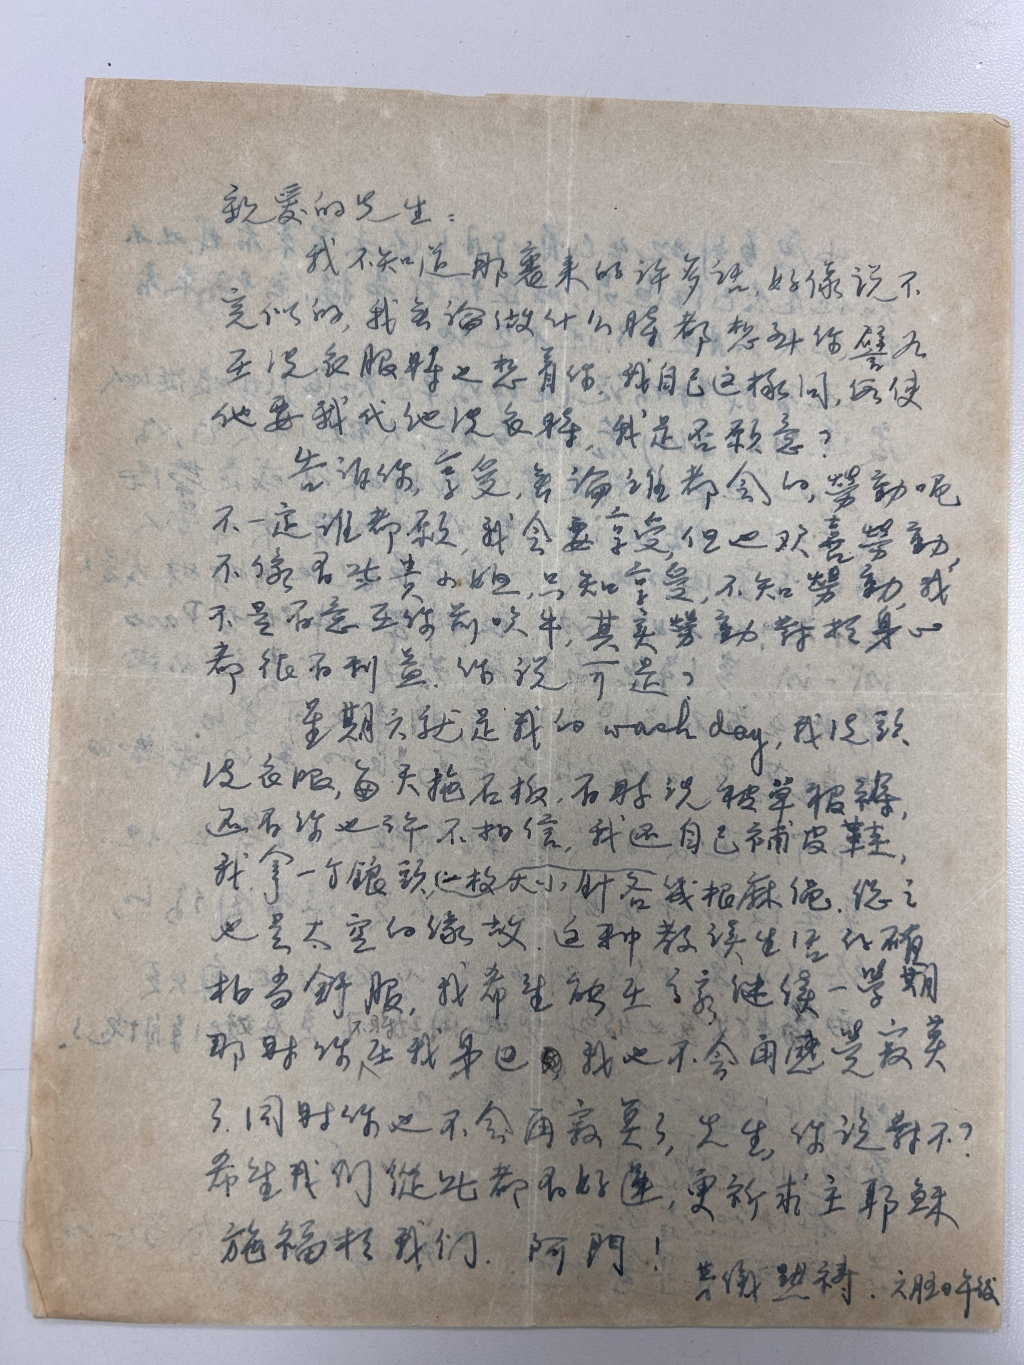 親爱的先生：
我不知道那裏来的许多话，好像说不
完似的，我無論做什么時都想到你，譬如
在洗衣服時也想着你，我自己这樣问，假使
他要我代他洗衣時，我是否願意？
告诉你，享受，無論誰都会的，勞動呢
不一定谁都願，我会要享受，但也欢喜勞動，
不像有些貴小姐，只知享受，不知勞動，我
不是有意在你前吹牛，其实勞動，對於身心
都很有利益，你说可是？
星期六就是我的wash day，我洗頭
洗衣服，每天拖石板，有時洗被單被褥，
还有你也许不相信，我还自己補皮鞋，
我拿一个鎯頭，一枚大小針各幾根麻绳，總之
也是太空的缘故，这种教读生活的確
相当舒服，我希望能在家，继续一學期
那時你在我身边，我也不会再感覺寂莫
了，同时你也不会再寂莫了，先生，你说對不？
希望我们從此都有好運，更祈求主耶穌
施福於我们．阿門！
六月五日午後